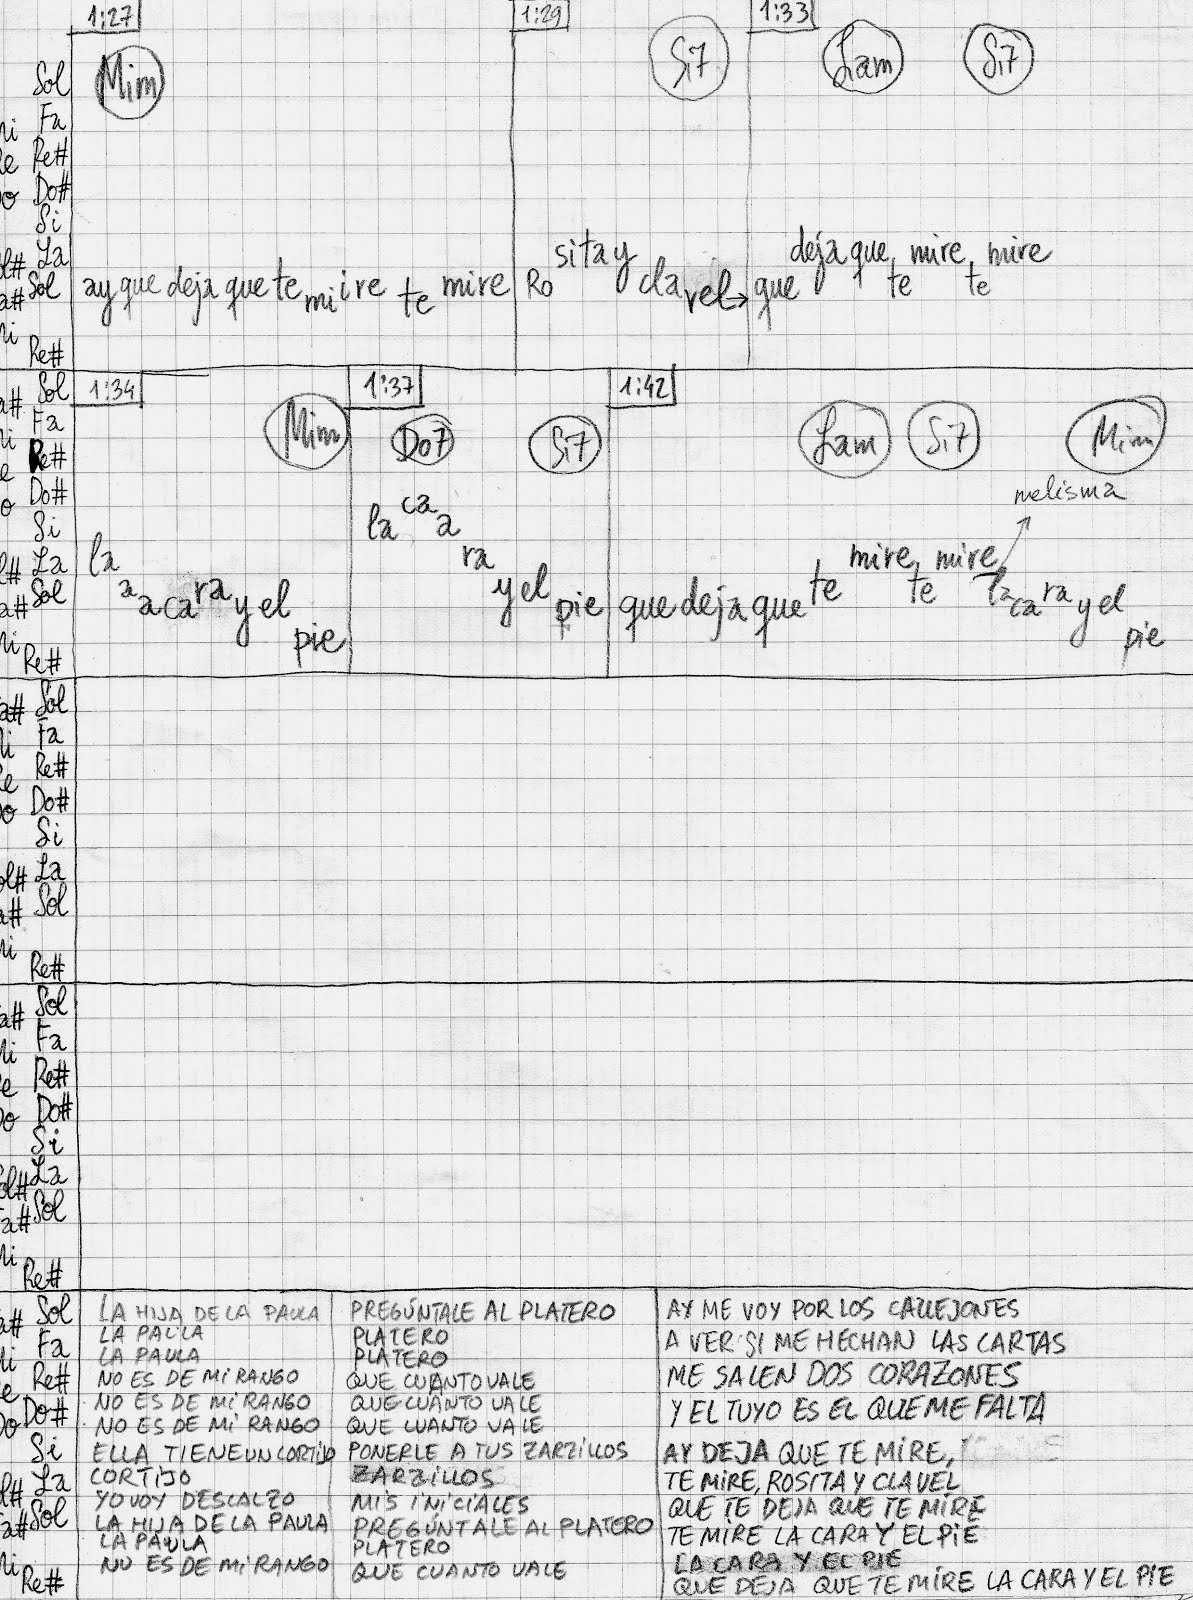 1:27 1:29 1:33
Mim Si7 Lam Si7
Sol
Fa
Re#
Do#
Si
La
Sol
Re#
ay que deja que te miire te mire Rosita y clavel→ que deja que te mire te mire
1:34 1:37 1:42
Mim Do7 Si7 Lam Si7 Mim
melisma
Sol
Fa
Re#
Do#
Si
La
Sol
Re#
la a a cara y el pie la caara y el pie que deja que te mire te mire la cara y el pie
Sol
Fa
Re#
Do#
Si
La
Sol
Re#
Sol
Fa
Re#
Do#
Si
La
Sol
Re#
Sol
Fa
Re#
Do#
Si
La
Sol
Re#
LA HIJA DE LA PAULA
LA PAULA
LA PAULA
NO ES DE MI RANGO
NO ES DE MI RANGO
NO ES DE MI RANGO
ELLA TIENE UN CORTIJO
CORTIJO
YO VOY DESCALZO
LA HIJA DE LA PAULA
LA PAULA
NO ES DE MI RANGO
PREGÚNTALE AL PLATERO
PLATERO
PLATERO
QUE CUANTO VALE
QUE CUANTO VALE
QUE CUANTO VALE
PONERLE A TUS ZARZILLOS
ZARZILLOS
MIS INICIALES
PREGÚNTALE AL PLATERO
PLATERO
QUE CUANTO VALE
AY ME VOY POR LOS CALLEJONES
A VER SI ME HECHAN LAS CARTAS
ME SALEN DOS CORAZONES
Y EL TUYO ES EL QUE ME FALTA
AY DEJA QUE TE MIRE,
TE MIRE, ROSITA Y CLAVEL
QUE TE DEJA QUE TE MIRE
TE MIRE LA CARA Y EL PIE
LA CARA Y EL PIE
QUE DEJA QUE TE MIRE LA CARA Y EL PIE